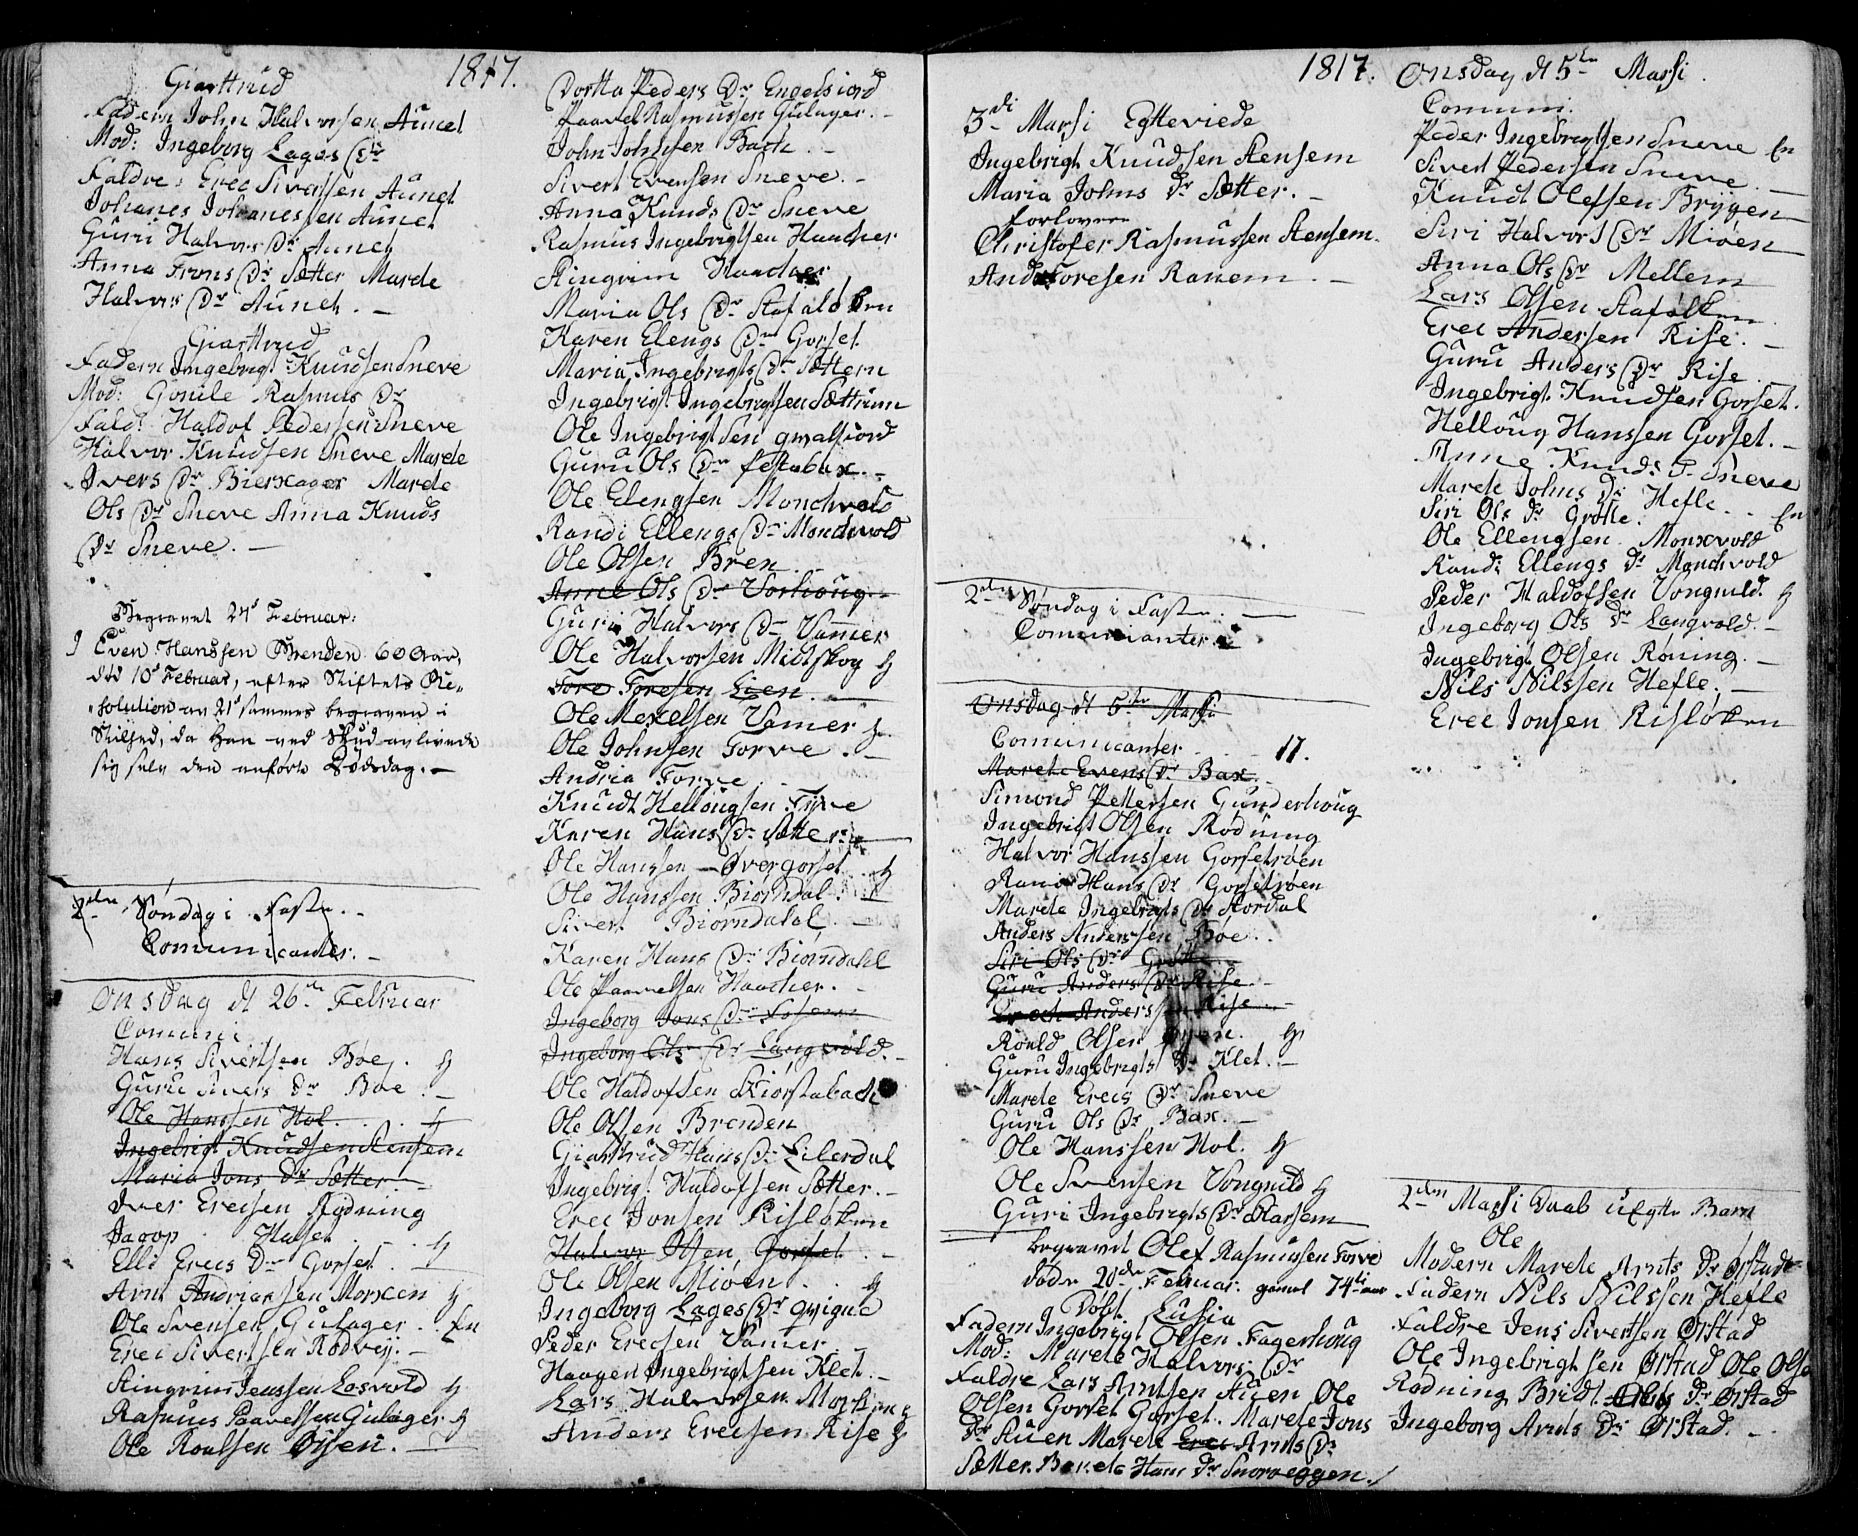 1817.
Giærttrud
Fadern John Halvorsen Aunet
Mod: Ingeborg Lages Dr
Faldre: Erec Sivertsen Aunet
Johanes Johanessen Aunet
Guru Halvors Dr Aunet
Anna Trons Dr Sætter Marete
Halvors Dr Aunet. —
Giærttrud
Fadern Ingebrigt Knudsen Sneve
Mod: Gonile Rasmus Dr
Fald: Haldof Pedersen Sneve
Halvor Knudsen Sneve Marete
Ivers Dr Bierkager Marete
Ols Dr Sneve Anna Knuds
Dr Sneve. —
Begravet 24d Februar:
Even Hanssen Brenden 60 aar,
død 10d Februar, efter Stiftets Re-
solution av 21d sammes begraven i
Stilhed, da han ved Skud avlivede
sig selv den anførte Dødsdag. —
2den Søndag i Faste. —
Comunicanter. —
Onsdag d 26de Februar
Comuni
Hans Sivertsen Bøe. g
Guru Sivers Dr Boe. —
Ole Hanssen Hol. g
Ingebrigt Knudsen Stensem
Maria Jons Dr Sætter. —
Iver Erecsen Rydning
Jacop Haset g
Elli Erecs Dr Gorset. —
Arnt Andriansen Morken g
Ole Svensen Gulager. En
Erec Sivertsen Rodvej. —
Stingrim Jenssen Losvold g
Rasmus Paavelsen Gulager g
Ole Roulsen Øjen. —
Dortta Peders Dr Engelsiord
Paavel Rasmussen Gulager. —
John Johnsen Bach. —
Sivert Evensen Sneve. —
Anna Knuds Dr Sneve
Rasmus Ingebrigtsen Haacher
Stingrim Haacher
Maria Ols Dr Stafaløken
Karen Elengs Dr Gorset
Maria Ingebrigts Dr Sættern
Ingebrigt Ingebrigtsen Sættrum
Ole Ingebrigtsen
Guru Ols Dr
Ole Elengsen Monchvold
Randi Ellengs Dr Monchvold
Ole Olsen Bren
Anne Ols Dr Vorhoug.
Guri Halvors Dr Vammer
Ole Halvorsen Midtskog g
Tore Toresen Lien. —
Ole Mekelsen Vamer g.
Ole Johnsen Torve. —
Andria Torve. —
Knudt Hellougsen Tyve
Karen Hans Dr Sætter.
Ole Hanssen Øvergorset g
Ole Hanssen Biorndal. g
Sivert Biorndalel. —
Karen Hans Dr Biørndahl
Ole Paavelsen Haacher. —
Ingeborg Jons Dr Fosem
Ingeborg Ols Dr Langvold. —
Ole Haldofsen Skiorstabach
Ole Olsen Brenden
Giærttrud Hans Dr Eilerdal
Ingebrigt. Haldofsen Sætter. —
Erec Jonsen Risløken
Halvor Olsen Gorset. —
Ole Olsen Miøen. g
Ingeborg Lages Dr Qvigne
Peder Erecsen Vamer. —
Haagen Ingebrigtsen Klet. —
Lars Halvorsen Morken g
Anders Erecsen Rise g
1817.
3di Marsi Egtteviede
Ingebrigt Knudsen Stensem
Maria Johns Dr Sætter. —
forlovere
Christofer Rasmussen Stensem.
And. Toresen Ranem. —
2den Søndag i Faste. —
Comunicanter.
Onsdag d 5te Marsi
Comunicanter 17.
Marete Evens Dr Bax.
Simond Pettersen Gunderhoug
Ingebrigt Olsen Rodning
Halvor Hanssen Gorsetrøen
Rani Hans Dr Gorsetrøen
Marete Ingebrigts Dr Stordal
Anders Anderssen Bøe.
Siri Ols Dr Grøtte
Guru Anders Dr Rise
Erech Anderssen Rise
Rould Olsen Øyen. g
Guru Ingebrigts Dr Klet. —
Marete Erecs Dr Sneve
Guru Ols Dr Bax. —
Ole Hanssen Hol. g
Ole Svensen Vongnild g
Guri Ingebrigts Dr Starsem
begravet Olef Rasmussen Torve
døde 20de Februar. gamel 74 aar
Døbt. Lusia
Fadern Ingebrigt Olsen Fagerhoug
Mod: Marete Halvors Dr
Faldre Lars Arntsen Auen Ole
Olsen Gorset Gorset. Marete Jons
Dr Auen Marete Erec Arnts Dr
Sætter. Berete Hans Dr Snoreggen.
Onsdag d 5te Marsi.
Comuni:
Peder Ingebrigtsen Sneve En
Sivert Pedersen Sneve. —
Knudt Olefsen Bryggen
Siri Halvors Dr Miøen
Anna Ols Dr Mellem
Lars Olsen Stafølken
Erec Andersen Rise. —
Guru Anders Dr Rise.
Ingebrigt Knudsen Gorset.
Helloug Hanssen Gorset. —
Anne Knuds D. Sneve
Marete Johns Dr Hefle
Siri Ols Dr Grøtte. En
Ole Ellengsen Monkvold
Randi Ellengs Dr Monchvold
Peder Haldofsen Vongnild. g
Ingeborg Ols Dr Langvold. —
Ingebrigt Olsen Røning. —
Nils Nilssen Hefle. —
Erec Jonsen Risløken
2den Marsi Daab uEgtte Barn
Ole
Modern Marete Arnts Dr Ørstad
Fadern Nils Nilssen Hefle
Faldre Jens Sivertsen Ørstad
Ole Ingebrigtsen Ørstad Ole Olse
Rodning Bridt Dr Ørstad
Ingeborg Arnts Dr Ørstad. —